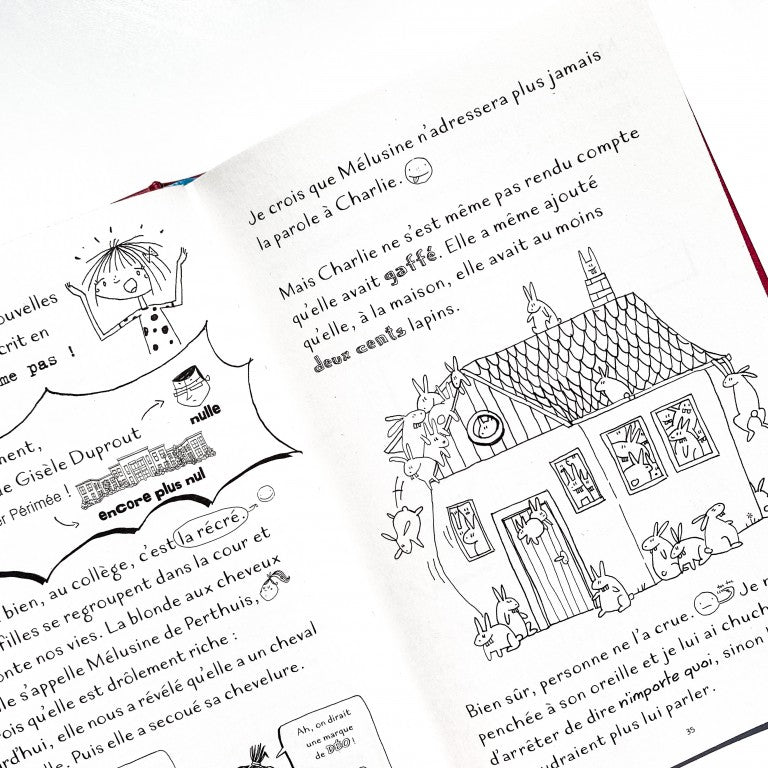 ouvelles
crit en
me pas !
ment,
e Gisèle Duprout
nulle
er Périmée !
encore plus nul
bien, au collège, c'est la récré.
filles se regroupent dans la cour et
onte nos vies. La blonde aux cheveux
lle s'appelle Mélusine de Perthuis,
ois qu'elle est drôlement riche :
urd'hui, elle nous a révélé qu'elle a un cheval
elle. Puis elle a secoué sa chevelure.
Ah, on dirait
une marque
de DÉO !
Je crois que Mélusine n'adressera plus jamais
la parole à Charlie.
Mais Charlie ne s'est même pas rendu compte
qu'elle avait gaffé. Elle a même ajouté
qu'elle, à la maison, elle avait au moins
deux cents lapins.
Bien sûr, personne ne l'a crue. Je
penchée à son oreille et je lui ai chuch
d'arrêter de dire n'importe quoi, sinon
udraient plus lui parler.
35